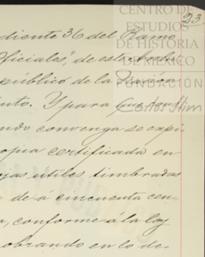 CENTRO DE
ESTUDIOS
DE HISTORIA
DE MÉXICO
FUNDACIÓN
23
diente 36 del Ramo
Oficiales", de este
público de la
nto. Y para
ndo convenga se expi
opia certificada en
jas útiles timbradas
de á cincuenta cen
a, conforme á la ley
obrando en lo de